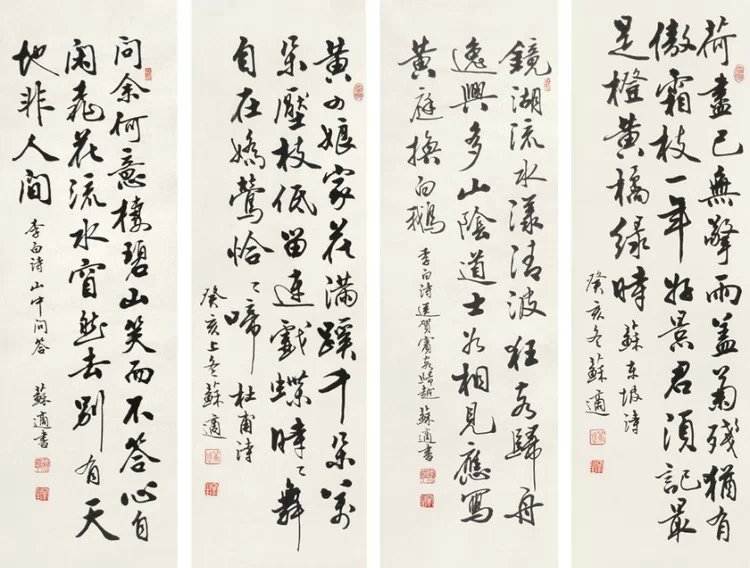 荷盡已無擎雨蓋菊殘猶有
傲霜枝一年好景君須記最
是橙黃橘綠時 蘇東坡詩
癸亥冬蘇適
鏡湖流水漾清波狂客歸舟
逸興多山陰道士若相見應寫
黃庭換白鵝 李白詩送賀賓客歸越 蘇適書
黃四娘家花滿蹊千朵萬
朵壓枝低留連戲蝶時〻舞
自在嬌鶯恰〻啼 杜甫詩
癸亥上冬蘇適
問余何意棲碧山笑而不答心自
閑桃花流水窅然去別有天
地非人間 李白诗山中问答 蘇適書